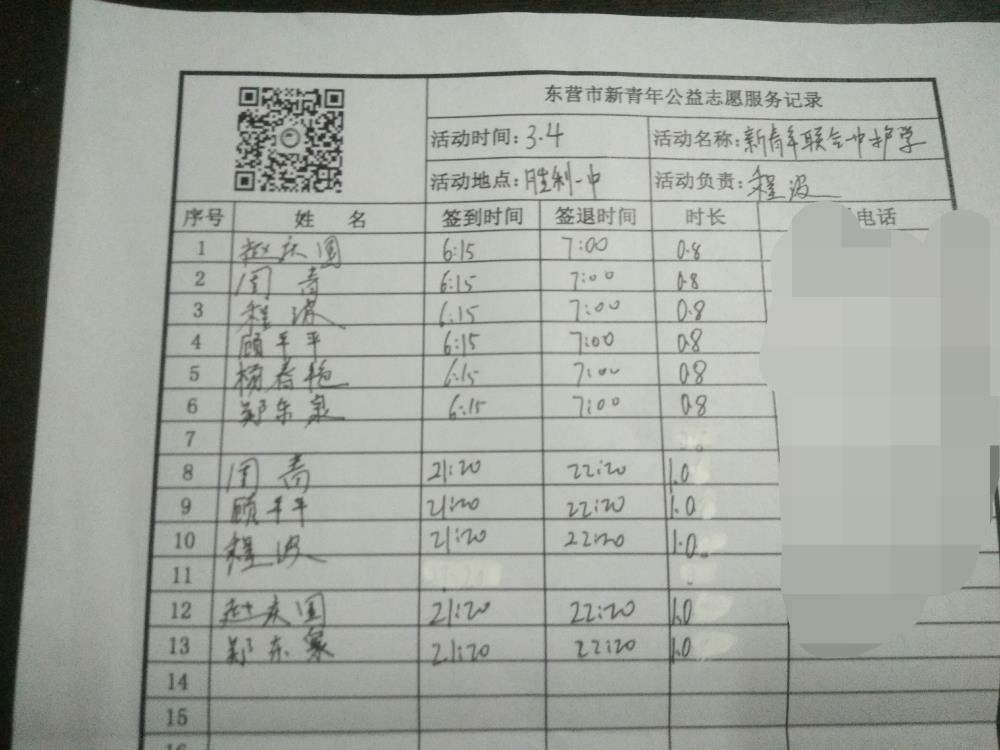 东营市新青年公益志愿服务记录
活动时间：3.4 活动名称：新青年联合一中护学
活动地点：胜利一中 活动负责：程波
序号 姓名 签到时间 签退时间 时长 电话
1 赵庆国 6:15 7:00 0.8
2 周青 6:15 7:00 0.8
3 程波 6:15 7:00 0.8
4 顾平平 6:15 7:00 0.8
5 杨春艳 6:15 7:00 0.8
6 郑东泉 6:15 7:00 0.8
7
8 周青 21:20 22:20 1.0
9 顾平平 21:20 22:20 1.0
10 程波 21:20 22:20 1.0
11
12 赵庆国 21:20 22:20 1.0
13 郑东 21:20 22:20 1.0
14
15
16